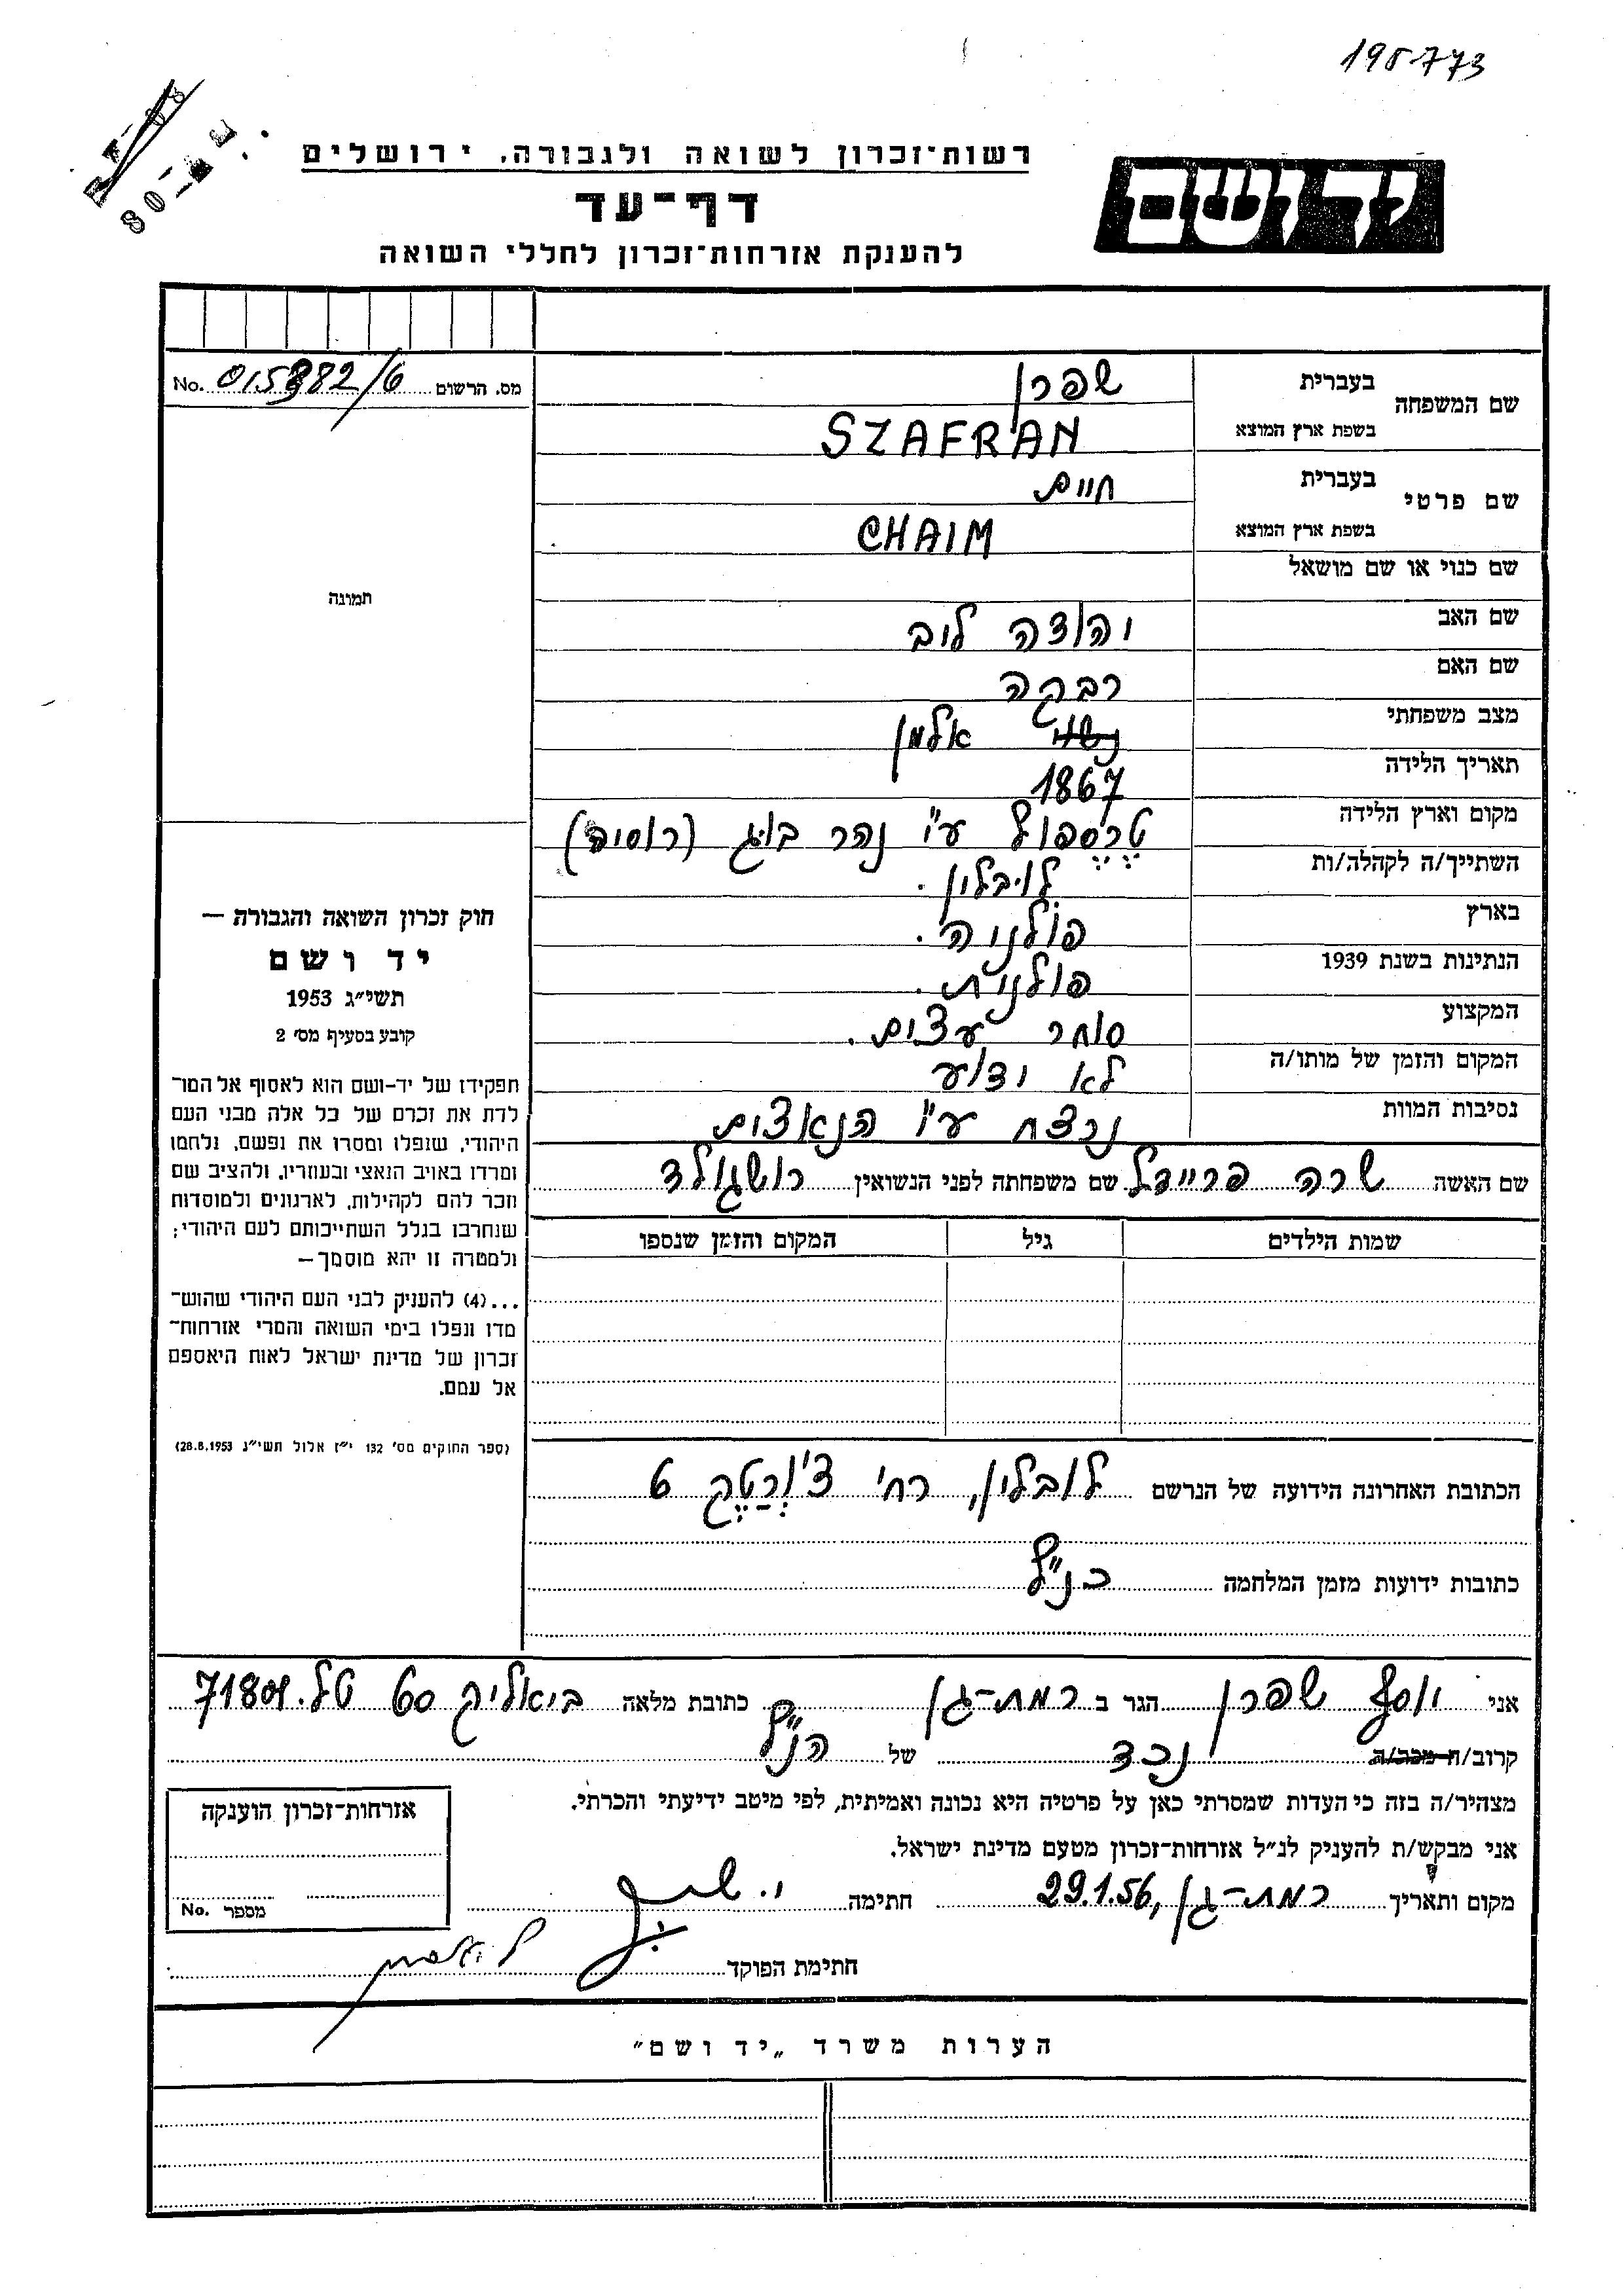 195773
רשות-זכרון לשואה ולגבורה, ירושלים
יד ושם
דף-עד
להענקת אזרחות-זכרון לחללי השואה
מס. הרשום 015382/6 No.
שם המשפחה
בעברית שפרן
בשפת ארץ המוצא SZAFRAN
שם פרטי
בעברית חיים
בשפת ארץ המוצא CHAIM
שם כנוי או שם מושאל
שם האב יהודה ליב
שם האם רבקה
מצב משפחתי נשוי אלמן
תאריך הלידה 1867
מקום וארץ הלידה טרספול ע״י נהר בוג (רוסיה)
השתייך/ה לקהלה/ות לובלין.
בארץ פולניה.
הנתינות בשנת 1939 פולנית.
המקצוע סוחר עצים.
המקום והזמן של מותו/ה לא ידוע
נסיבות המוות נרצח ע״י הנאצים
שם האשה שרה פריידל שם משפחתה לפני הנשואין רושגולד
שמות הילדים גיל המקום והזמן שנספו
הכתובת האחרונה הידועה של הנרשם לובלין, רח׳ צ׳ורטק 6
כתובות ידועות מזמן המלחמה כנ״ל
תמונה
חוק זכרון השואה והגבורה —
יד ושם
תשי״ג 1953
קובע בסעיף מס׳ 2
תפקידן של יד-ושם הוא לאסוף אל המו־
לדת את זכרם של כל אלה מבני העם
היהודי, שנפלו ומסרו את נפשם, נלחמו
ומרדו באויב הנאצי ובעוזריו, ולהציב שם
וזכר להם לקהילות, לארגונים ולמוסדות
שנחרבו בגלל השתייכותם לעם היהודי;
ולמטרה זו יהא מוסמך —
...(4) להעניק לבני העם היהודי שהוש־
מדו ונפלו בימי השואה והמרי אזרחות־
זכרון של מדינת ישראל לאות היאספם
אל עמם.
(ספר החוקים מס׳ 132 י״ז אלול תשי״ג 28.8.1953)
אני יוסף שפרן הגר ב רמת-גן כתובת מלאה ביאליק 60 טל. 71801
קרוב/ה מכר/ה נכד של הנ״ל
מצהיר/ה בזה כי העדות שמסרתי כאן על פרטיה היא נכונה ואמיתית, לפי מיטב ידיעתי והכרתי.
אני מבקש/ת להעניק לנ״ל אזרחות-זכרון מטעם מדינת ישראל.
מקום ותאריך רמת-גן, 29.1.56 חתימה
חתימת הפוקד
אזרחות-זכרון הוענקה
מספר No.
הערות משרד „יד ושם״